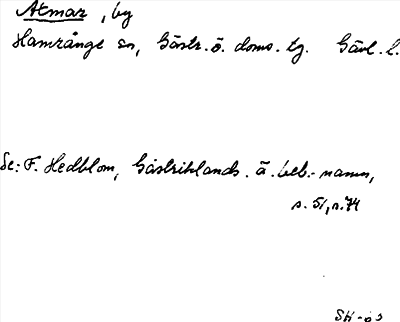 Åtmar, by
Hamrånge sn, Gästr. ö. doms. tg. Gävl. l.
Se: F. Hedblom, Gästriklands ä. beb.-namn,
s. 51, s. 74